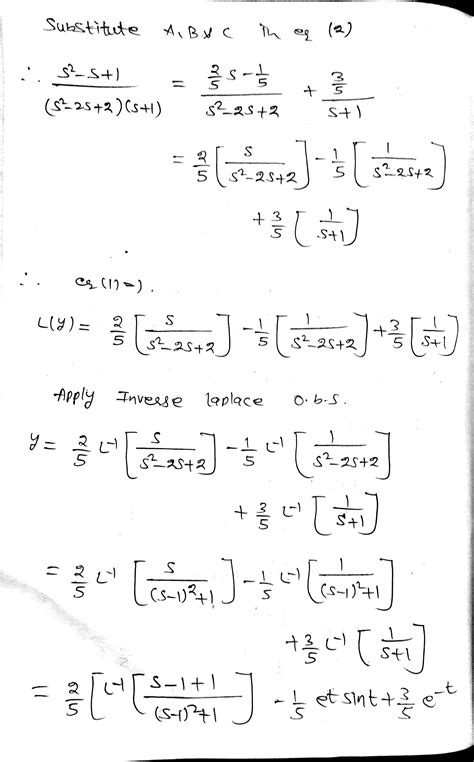 Substitute A, B & C in eq (2)
∴ (s²-s+1)/((s²-2s+2)(s+1)) = (2/5 s - 1/5)/(s²-2s+2) + (3/5)/(s+1)
= 2/5 [s/(s²-2s+2)] - 1/5 [1/(s²-2s+2)]
+ 3/5 [1/(s+1)]
∴ eq (1) =).
L(y) = 2/5 [s/(s²-2s+2)] - 1/5 [1/(s²-2s+2)] + 3/5 [1/(s+1)]
Apply Inverse laplace o.b.s.
y = 2/5 L⁻¹ [s/(s²-2s+2)] - 1/5 L⁻¹ [1/(s²-2s+2)]
+ 3/5 L⁻¹ [1/(s+1)]
= 2/5 L⁻¹ [s/((s-1)²+1)] - 1/5 L⁻¹ [1/((s-1)²+1)]
+ 3/5 L⁻¹ [1/(s+1)]
= 2/5 [L⁻¹ [(s-1+1)/((s-1)²+1)] - 1/5 eᵗ sint + 3/5 e⁻ᵗ